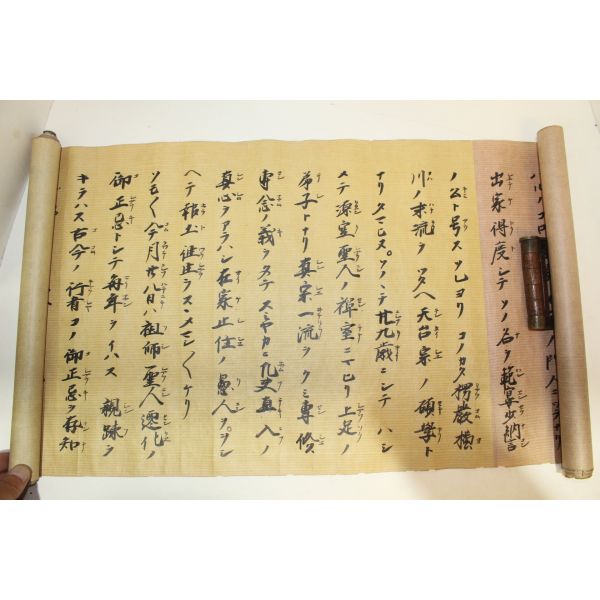 出家得度シテソノ名ヲ範宴少納言
ノ公ト号スソレヨリコノカタ楞厳横
川ノ末流ヲツタヘ天台宗ノ碩学ト
ナリタマヒヌ。ソノノチ廿九歳ニシテハシ
メテ源空聖人ノ禅室ニマヒリ上足ノ
弟子トナリ真宗一流ヲクミ専修
専念ノ義ヲタテスミヤカニ凡夫直入ノ
真心ヲアラハシ在家止住ノ愚人ヲ。ヲシ
ヘテ報土往生ヲススメマシ〱ケリ
ソモ〱今月廿八日ハ祖師聖人遷化ノ
御正忌トシテ毎年ヲイハス親疎ヲ
キラハス古今ノ行者コノ御正忌ヲ存知